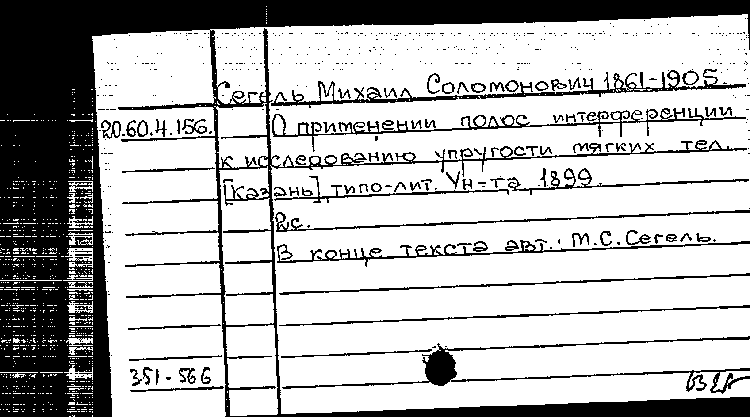 Сегель, Михаил Соломонович, 1861-1905.
20.60.4.156. О применении полос интерференции
к исследованию упругости мягких тел.
[Казань], типо-лит. Ун-та, 1899.
2с.
В конце текста авт.: М.С.Сегель.
351-566